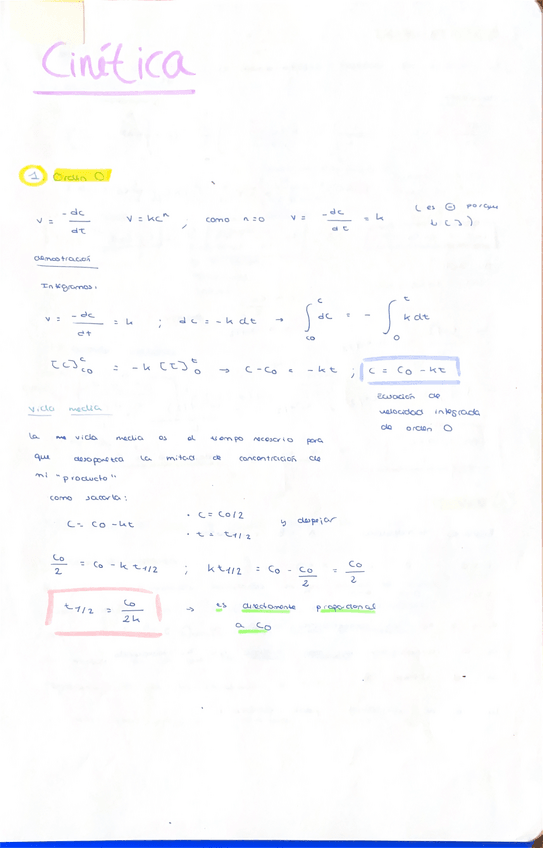 Cinética
1 Orden 0
v = -dc/dt   v = kcⁿ, como n=0   v = -dc/dt = k   (es ⊖ porque
↓ [ ])
demostración
Integramos:
v = -dc/dt = k ; dc = -k dt → ∫_{c0}^{c} dc = - ∫_{0}^{t} k dt
[c]_{c0}^{c} = -k [t]_{0}^{t} → c - c0 = -kt ; c = c0 - kt
Ecuación de
velocidad integrada
de orden 0
vida media
la vida media es el tiempo necesario para
que desaparezca la mitad de concentración de
mi "producto"
como sacarla:
c = c0 - kt   · c = c0/2   y despejar
· t = t1/2
c0/2 = c0 - k t1/2 ; kt1/2 = c0 - c0/2 = c0/2
t1/2 = c0/2k → es directamente proporcional
a c0